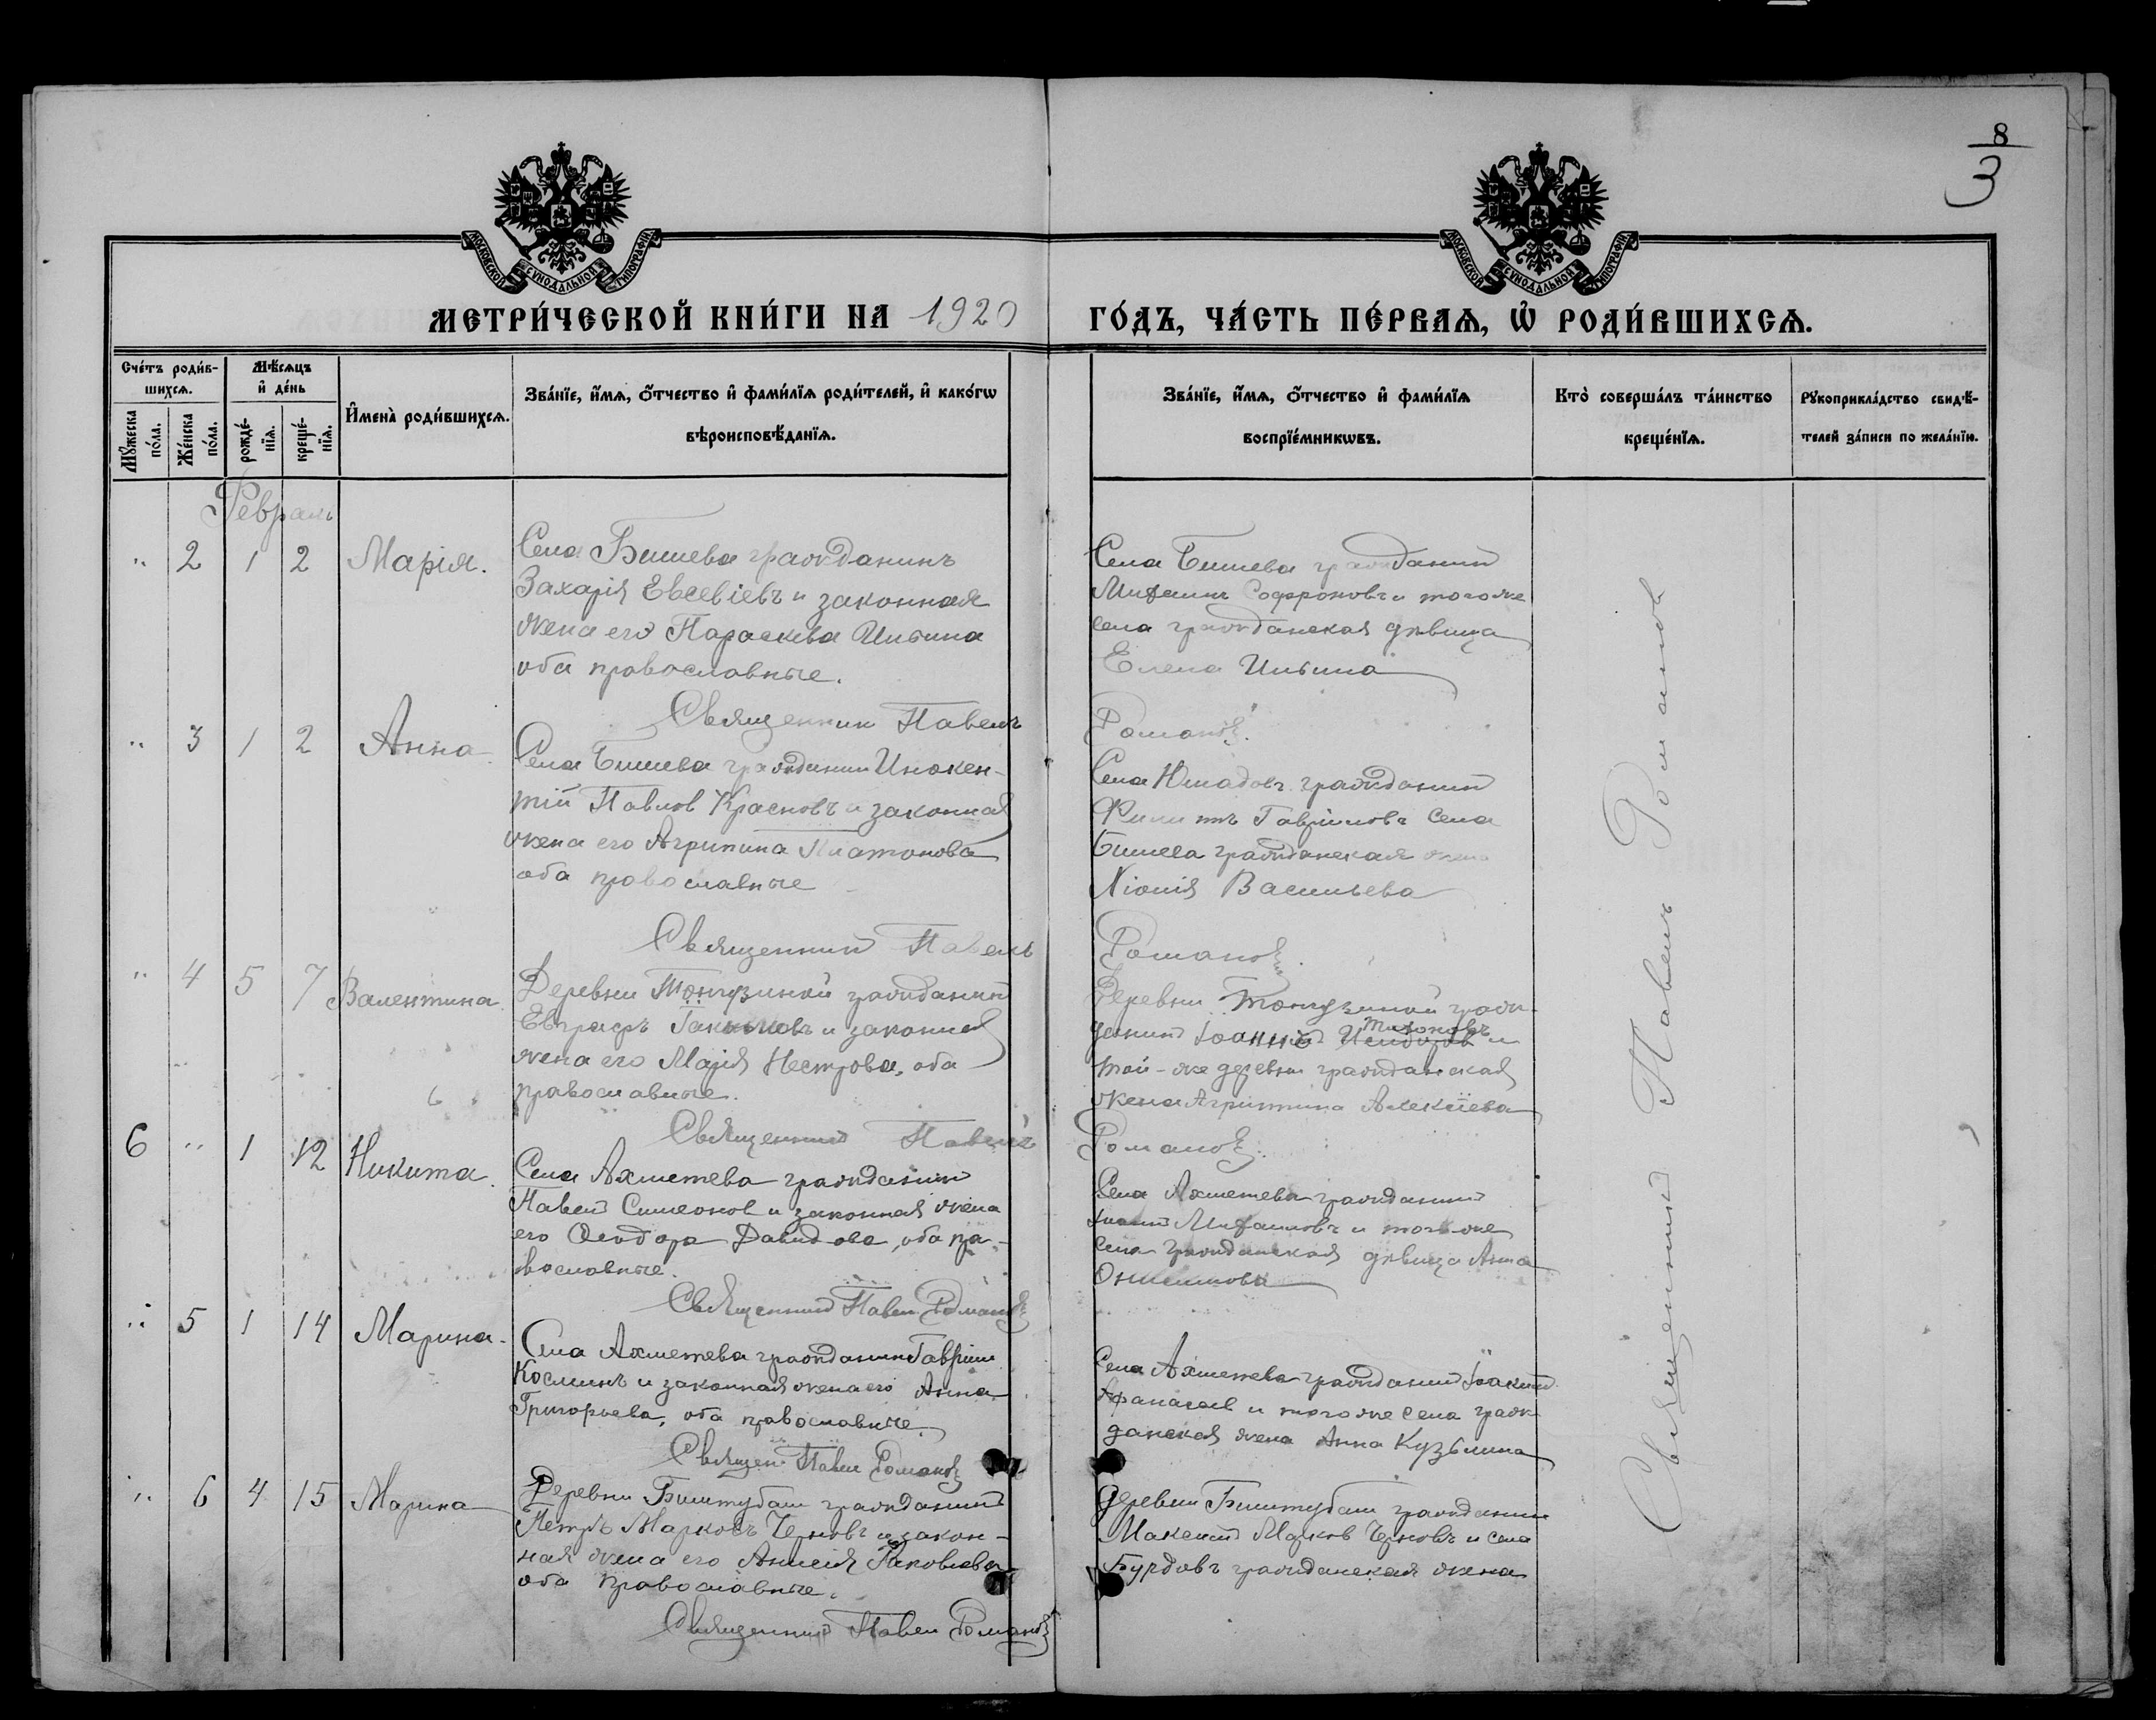 8
3
МОСКОВСКОЙ СѴНОДАЛЬНОЙ ТИПОГРАФІИ
МОСКОВСКОЙ СѴНОДАЛЬНОЙ ТИПОГРАФІИ
МЕТРИ́ЧЕСКОЙ КНИ́ГИ НА 1920 ГО́ДЪ, ЧА́СТЬ ПЕ́РВАѦ, Ѽ РОДИ́ВШИХСѦ.
Сче́тъ роди́в-
шихсѧ.
Мꙋ́жеска
по́ла.
Же́нска
по́ла.
Мѣ́сѧцъ
и҆ де́нь
рожде́-
нїѧ.
креще́-
нїѧ.
И҆мена̀ роди́вшихсѧ.
Зва́нїе, и҆́мѧ, ѻ҆́тчество и҆ фами́лїѧ роди́телей, и҆ како́гѡ
вѣроисповѣ́данїѧ.
Зва́нїе, и҆́мѧ, ѻ҆́тчество и҆ фами́лїѧ
воспрїе́мникѡвъ.
Кто̀ соверша́лъ та́инство
креще́нїѧ.
Рꙋкоприкла́дство свидѣ́-
телей за́писи по жела́нїю.
Февраль
" 2 1 2 Марія.
Села Бишева гражданинъ
Захарія Евсевіевъ и законная
жена его Параскева Ильина
оба православные.
Священник Павелъ
Села Бишева гражданин
Софроновъ и того же
села гражданская дѣвица
Елена Ильина
Романов.
" 3 1 2 Анна
Села Бишева гражданин Инокен-
тій Павлов Красновъ и законная
жена его Агрипина Платонова
оба православные
Священник Павелъ
Села Юмадовъ гражданин
Филиппъ Гавріиловъ Села
Бишева гражданская жена
Хіонія Васильева
Романов.
" 4 5 7 Валентина
Деревни гражданин
Евграфъ и законная
жена его Марія Нестрова, оба
православные.
Священник Павелъ
Деревни граж-
данин Іоанн Исидоров Тихоновъ и
той-же деревни гражданская
жена Агрипина Алексіева
Романов.
6 " 1 12 Никита.
Села Ахметева гражданин
Павел Симеонов и законная жена
его Ѳеодора Давидова, оба пра-
вославные.
Священник Павел Романов
Села Ахметева гражданин
и того же
села гражданская дѣвица Анна
Онисимова
" 5 1 14 Марина.
Села Ахметева гражданин Гавріил
Косминъ и законная жена его Анна
Григорьева, оба православные.
Священ Павел Романов
Села Ахметева гражданин Іоаким
Афанасьев и того же села граж-
данская жена Анна Кузьмина
" 6 4 15 Марина
Деревни Биштубаш гражданин
Петръ Марковъ Черновъ и закон-
ная жена его Анисія Іаковлева
оба православные.
Священник Павел Романов
Деревни Биштубаш гражданин
Максим Марков Черновъ и села
Бурдовъ гражданская жена
Священник Павелъ Романов